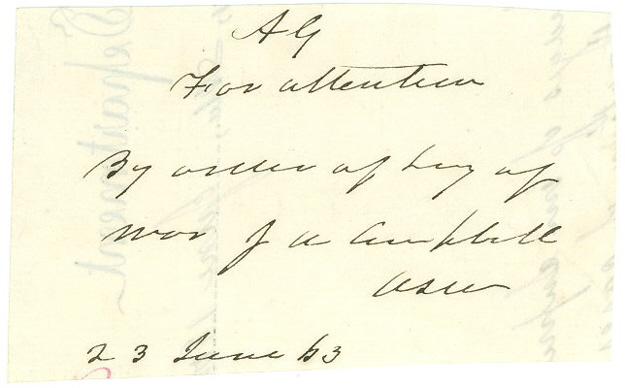 AG
For attention
By order of Secy of
War J A Campbell
ASW
23 June 63
Department